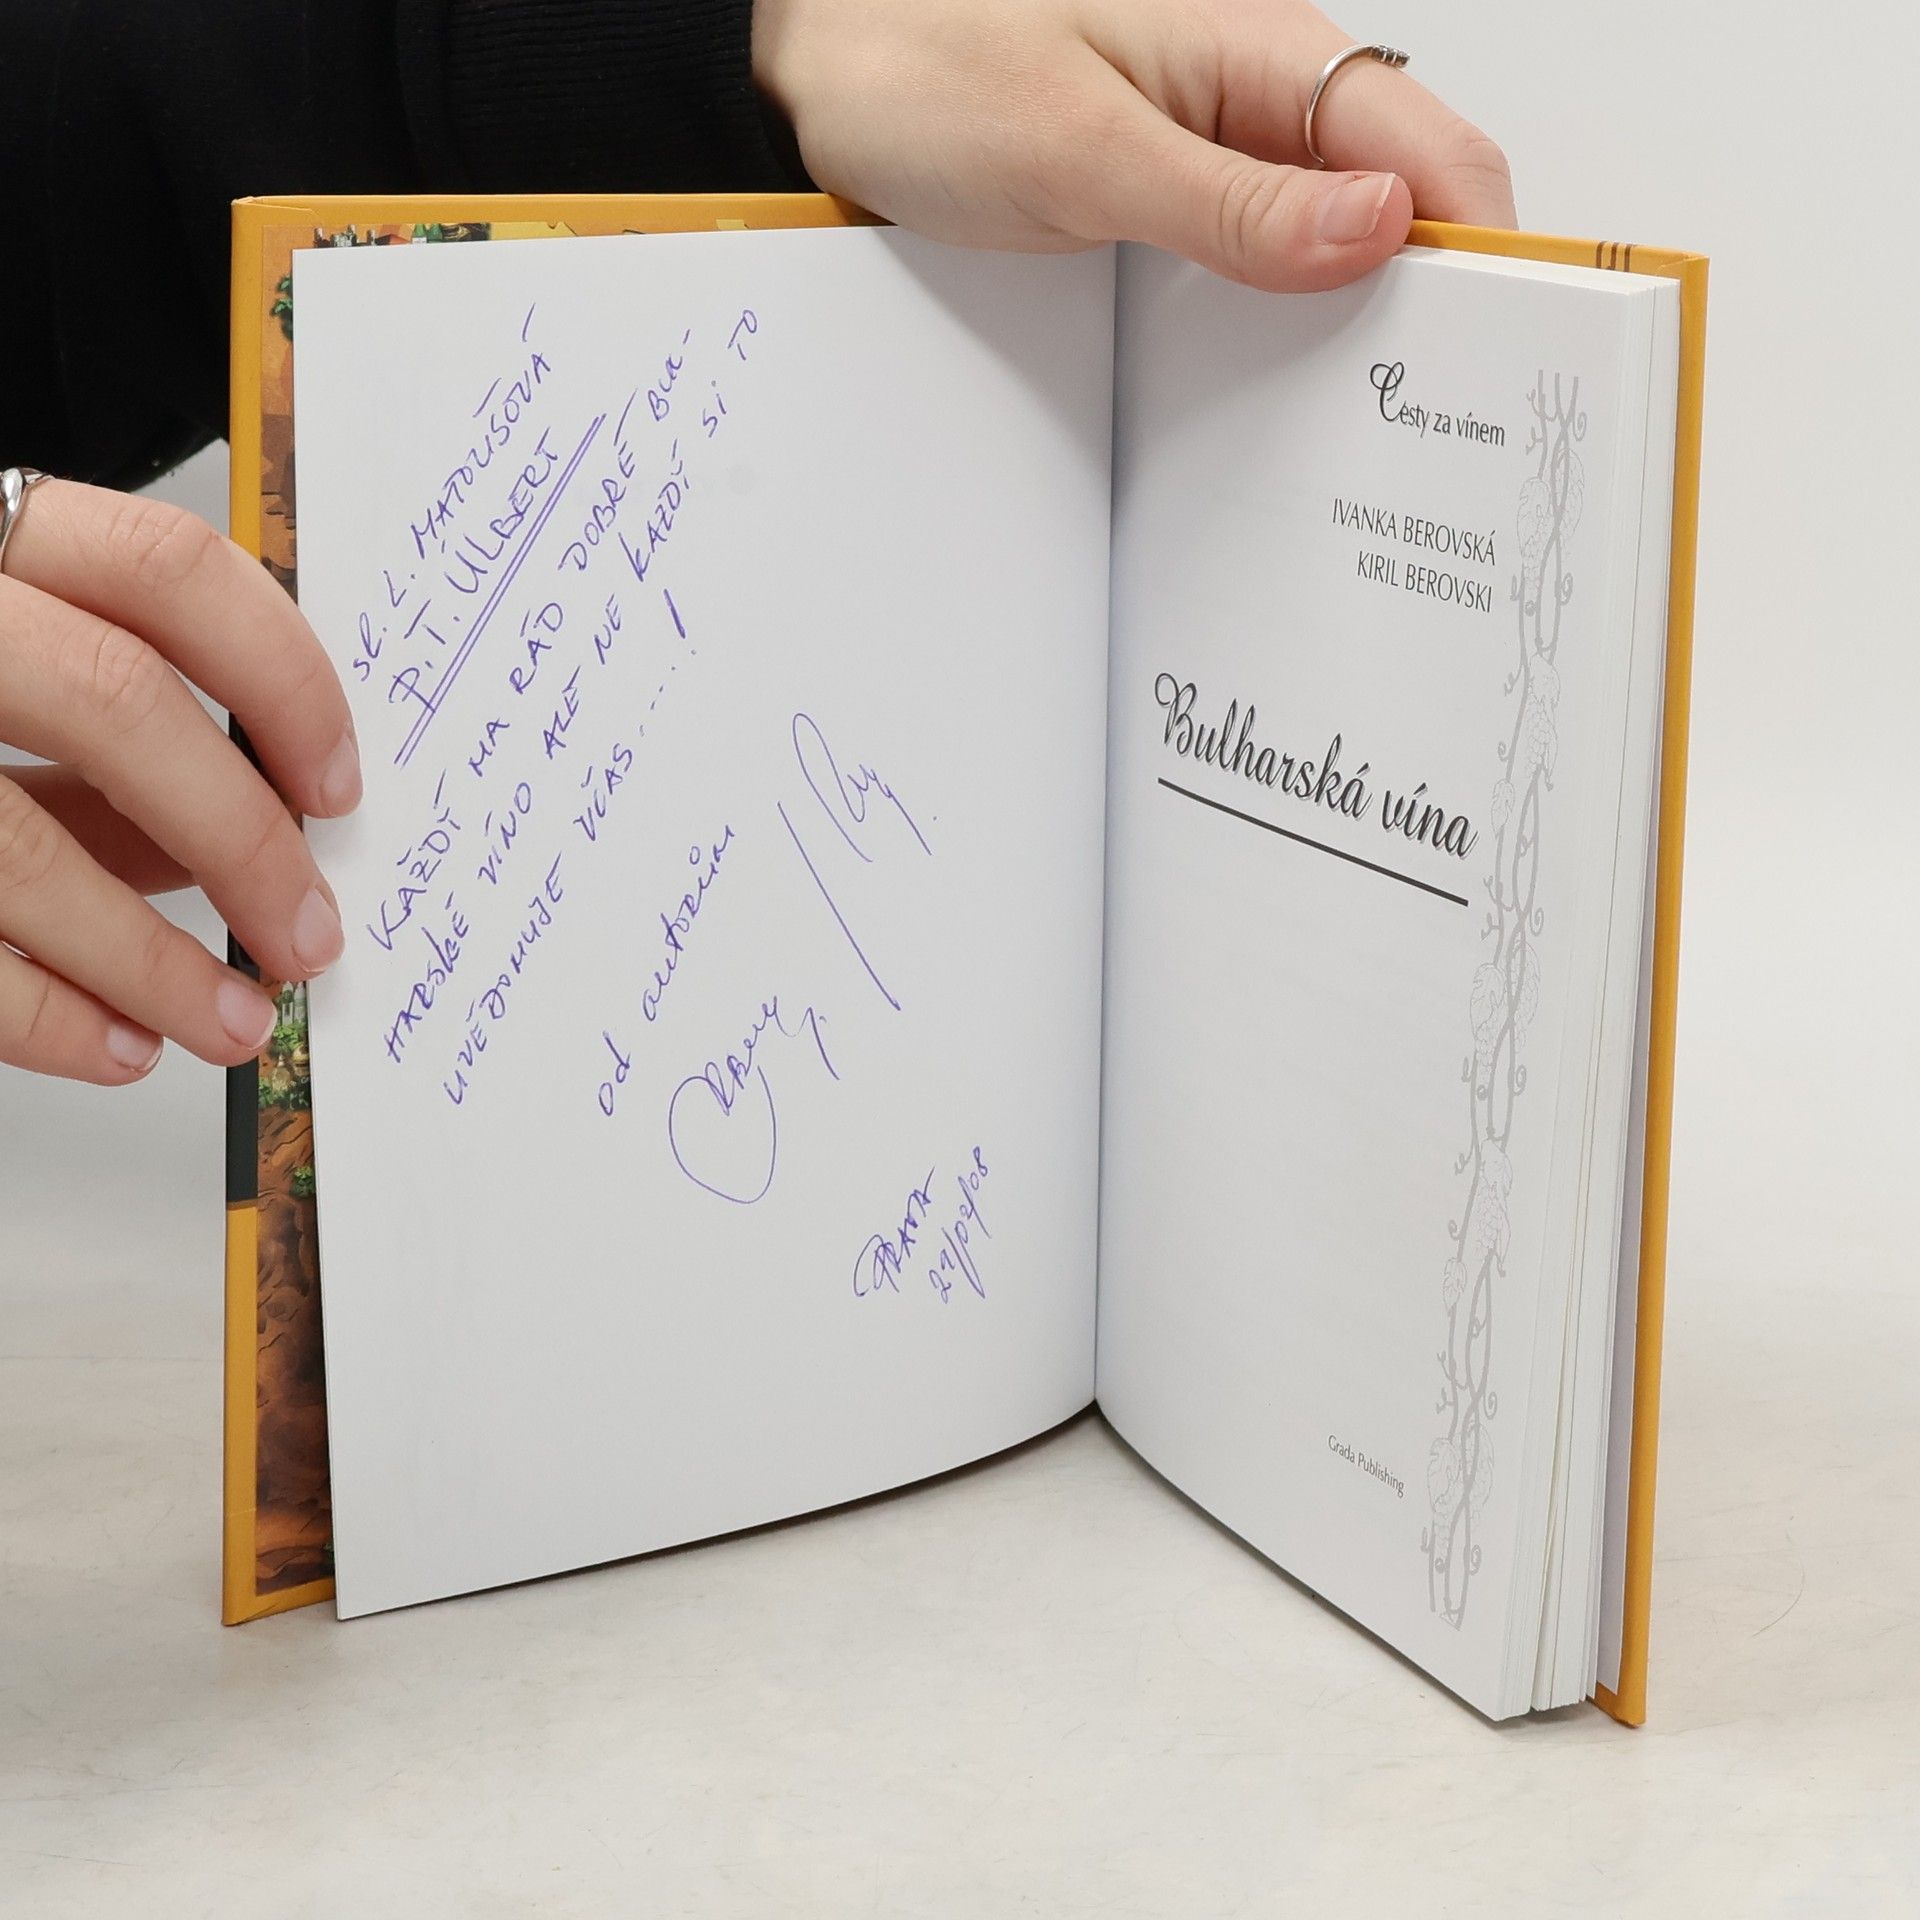 sl. L. MATOUŠOVÁ
P.T. ÚLBERT
KAŽDÝ MA RÁD DOBRÉ BUL-
HARSKÉ VÍNO ALE NE KAŽDÝ SI TO
UVĚDOMUJE VČAS....!
od autorů
PRAHA
29/02/08
Cesty za vínem
IVANKA BEROVSKÁ
KIRIL BEROVSKI
Bulharská vína
Grada Publishing